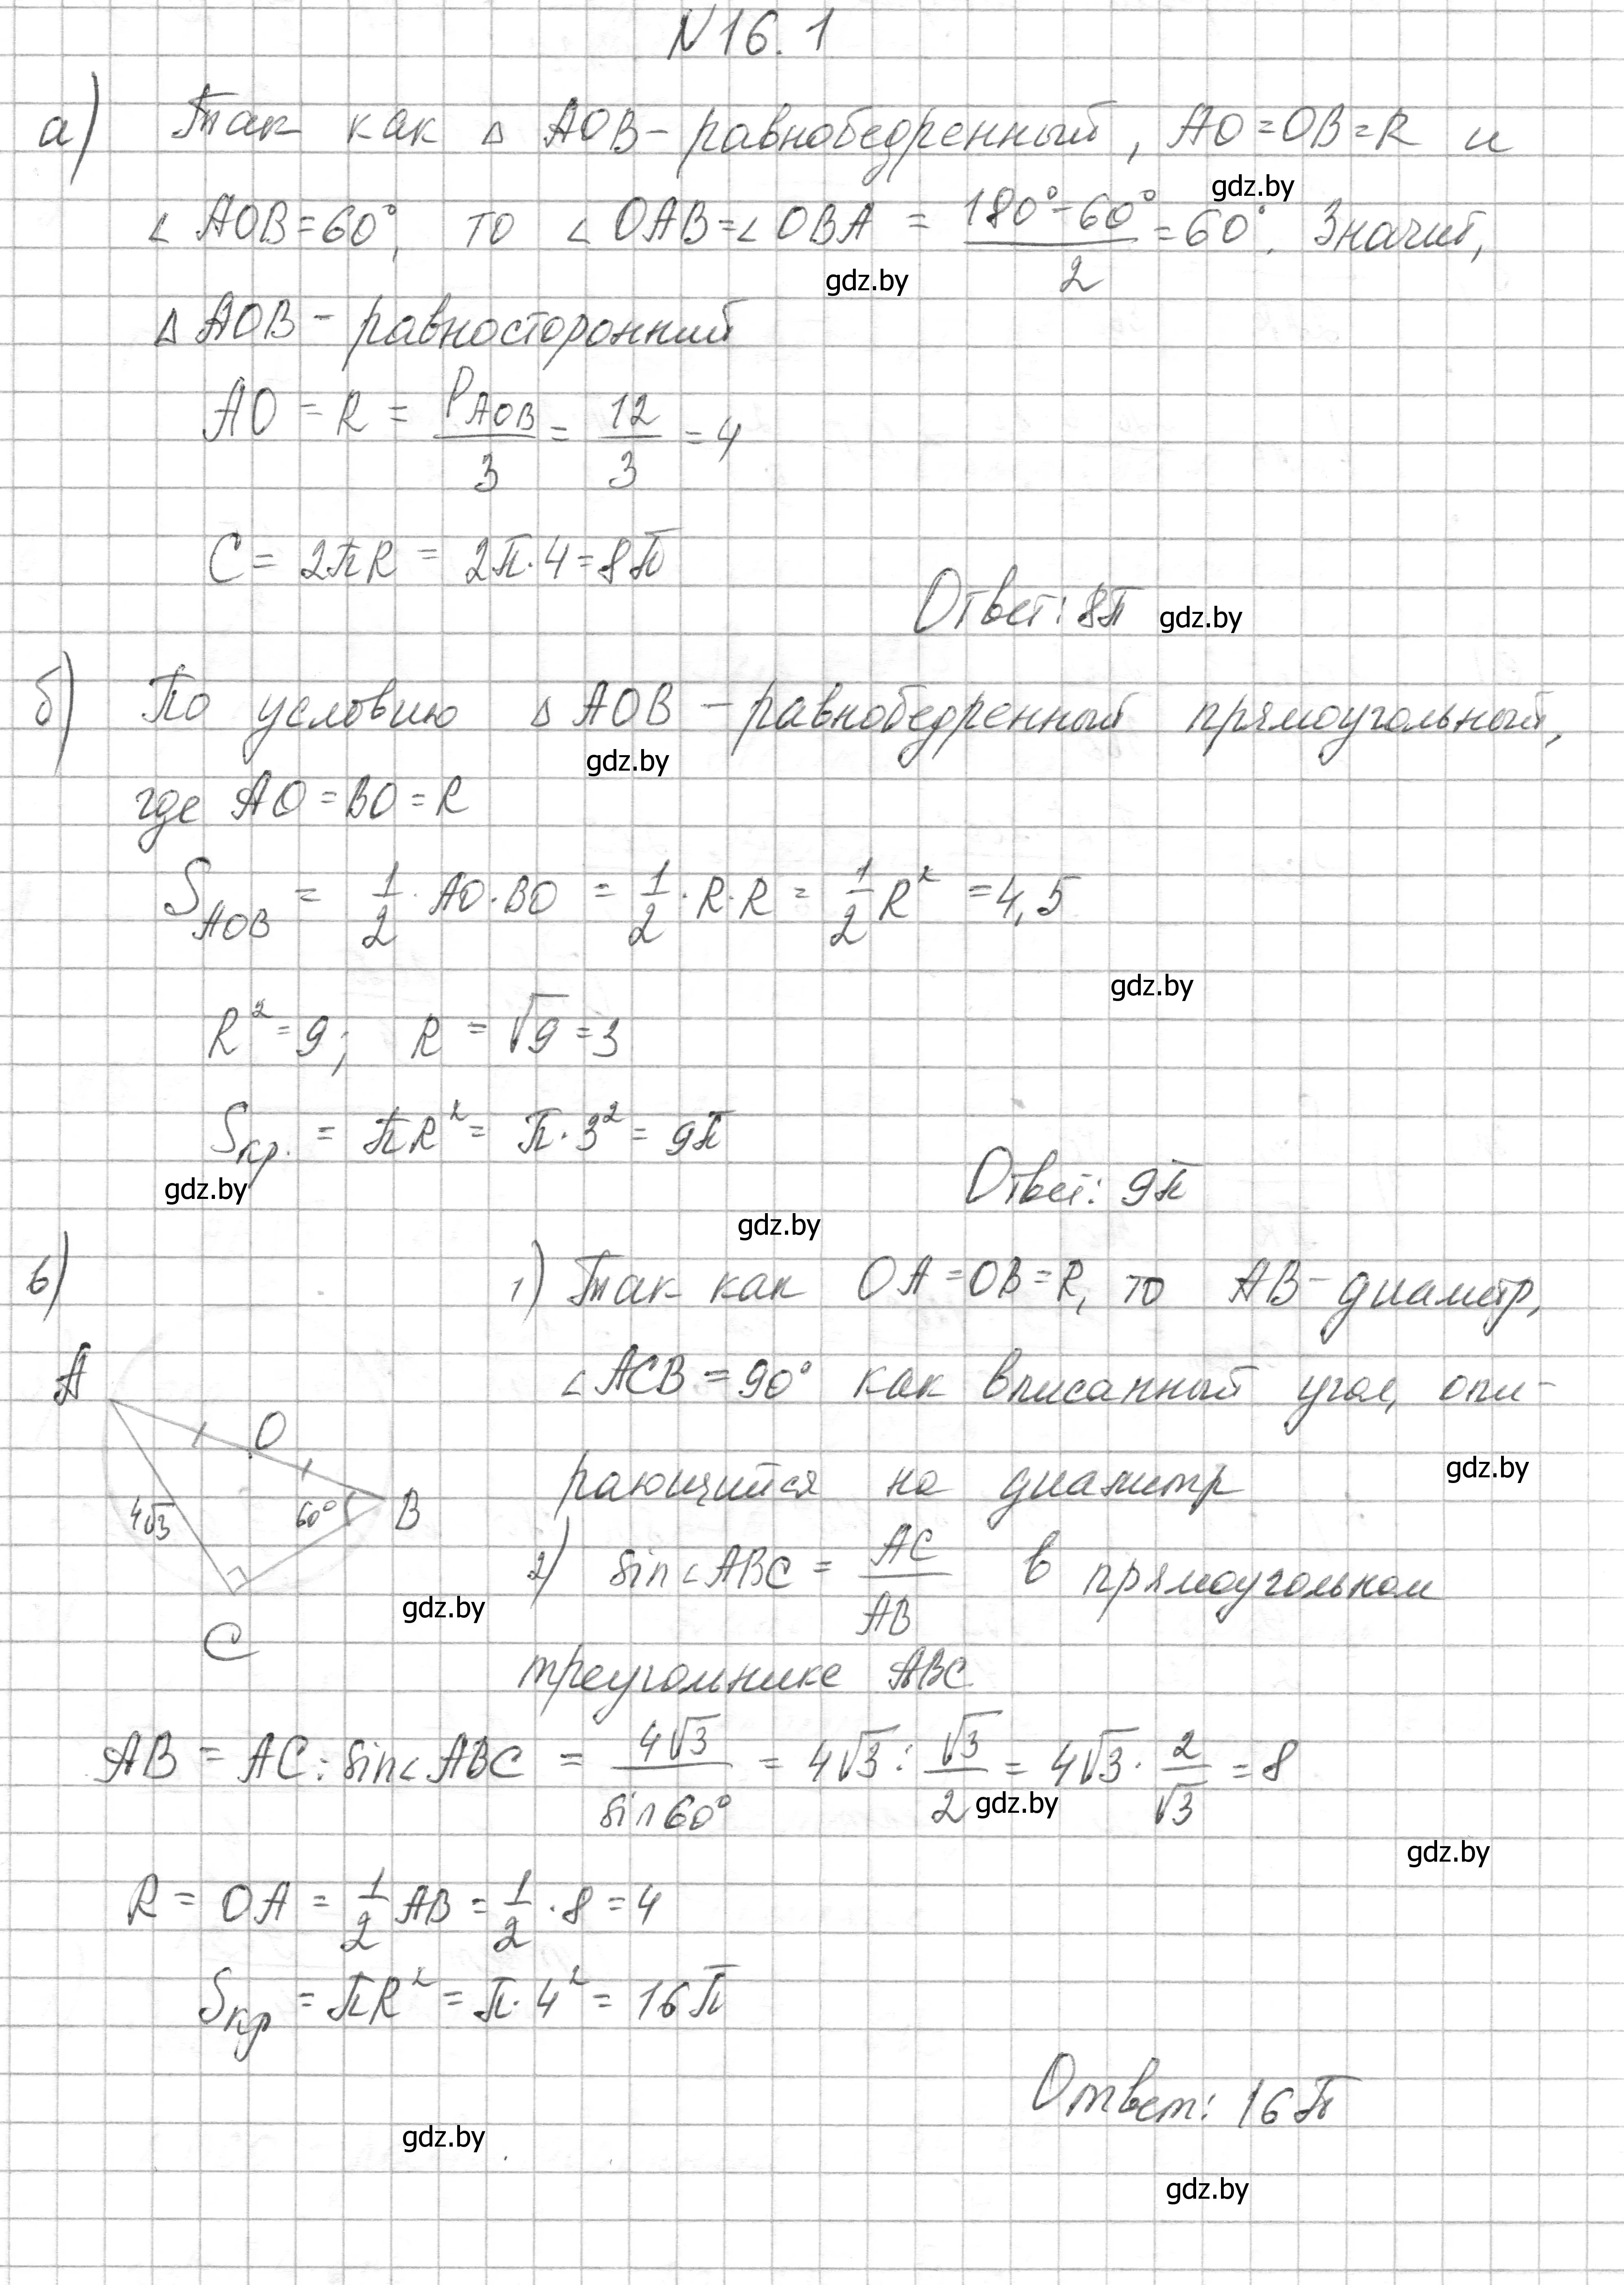 N 16.1
а) Так как △ AOB - равнобедренный, AO = OB = R и
gdz.by
∠ AOB = 60°, то ∠ OAB = ∠ OBA = (180° - 60°)/2 = 60°. Значит,
gdz.by
△ AOB - равносторонний
AO = R = P_AOB/3 = 12/3 = 4
C = 2πR = 2π · 4 = 8π
Ответ: 8π gdz.by
б) По условию △ AOB - равнобедренный прямоугольный,
gdz.by
где AO = BO = R
S_AOB = 1/2 · AO · BO = 1/2 · R · R = 1/2 R² = 4,5
gdz.by
R² = 9; R = √9 = 3
Sкр. = πR² = π · 3² = 9π
gdz.by
Ответ: 9π
gdz.by
в) 1) Так как OA = OB = R, то AB - диаметр,
∠ ACB = 90° как вписанный угол, опи-
gdz.by
рающийся на диаметр
A
O
B
4√3
60°
C
gdz.by
2) sin∠ABC = AC/AB в прямоугольном
треугольнике ABC
AB = AC : sin∠ABC = 4√3/sin60° = 4√3 : √3/2 = 4√3 · 2/√3 = 8
gdz.by
gdz.by
R = OA = 1/2 AB = 1/2 · 8 = 4
Sкр = πR² = π · 4² = 16π
Ответ: 16π
gdz.by
gdz.by